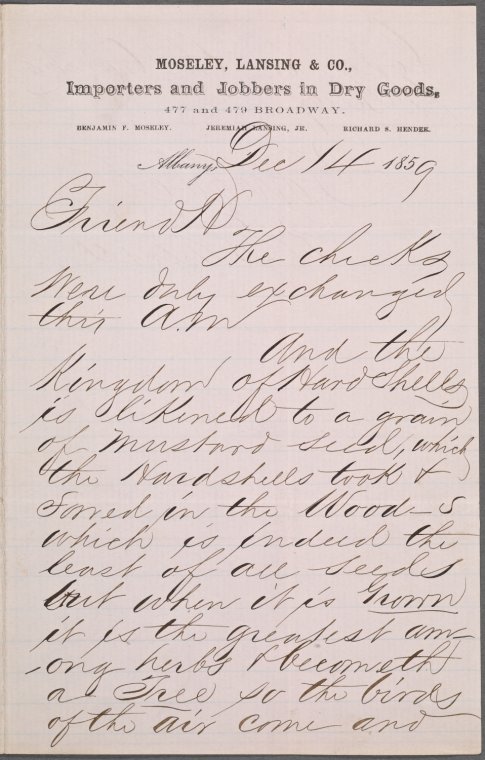 MOSELEY, LANSING & CO.,
Importers and Jobbers in Dry Goods,
477 and 479 BROADWAY.
BENJAMIN F. MOSELEY. JEREMIAH LANSING, JR. RICHARD S. HENDEE.
Albany, Dec 14 1859
Friend H
The checks
were duly exchanged
this A.M
And the
Kingdom of Hard Shells
is likened to a grain
of mustard seed, which
the Hardshells took &
sowed in the Woods
which is indeed the
least of all seeds
but when it is Grown
it is the greatest am-
-ong herbs & becometh
a Tree so the birds
of the air come and